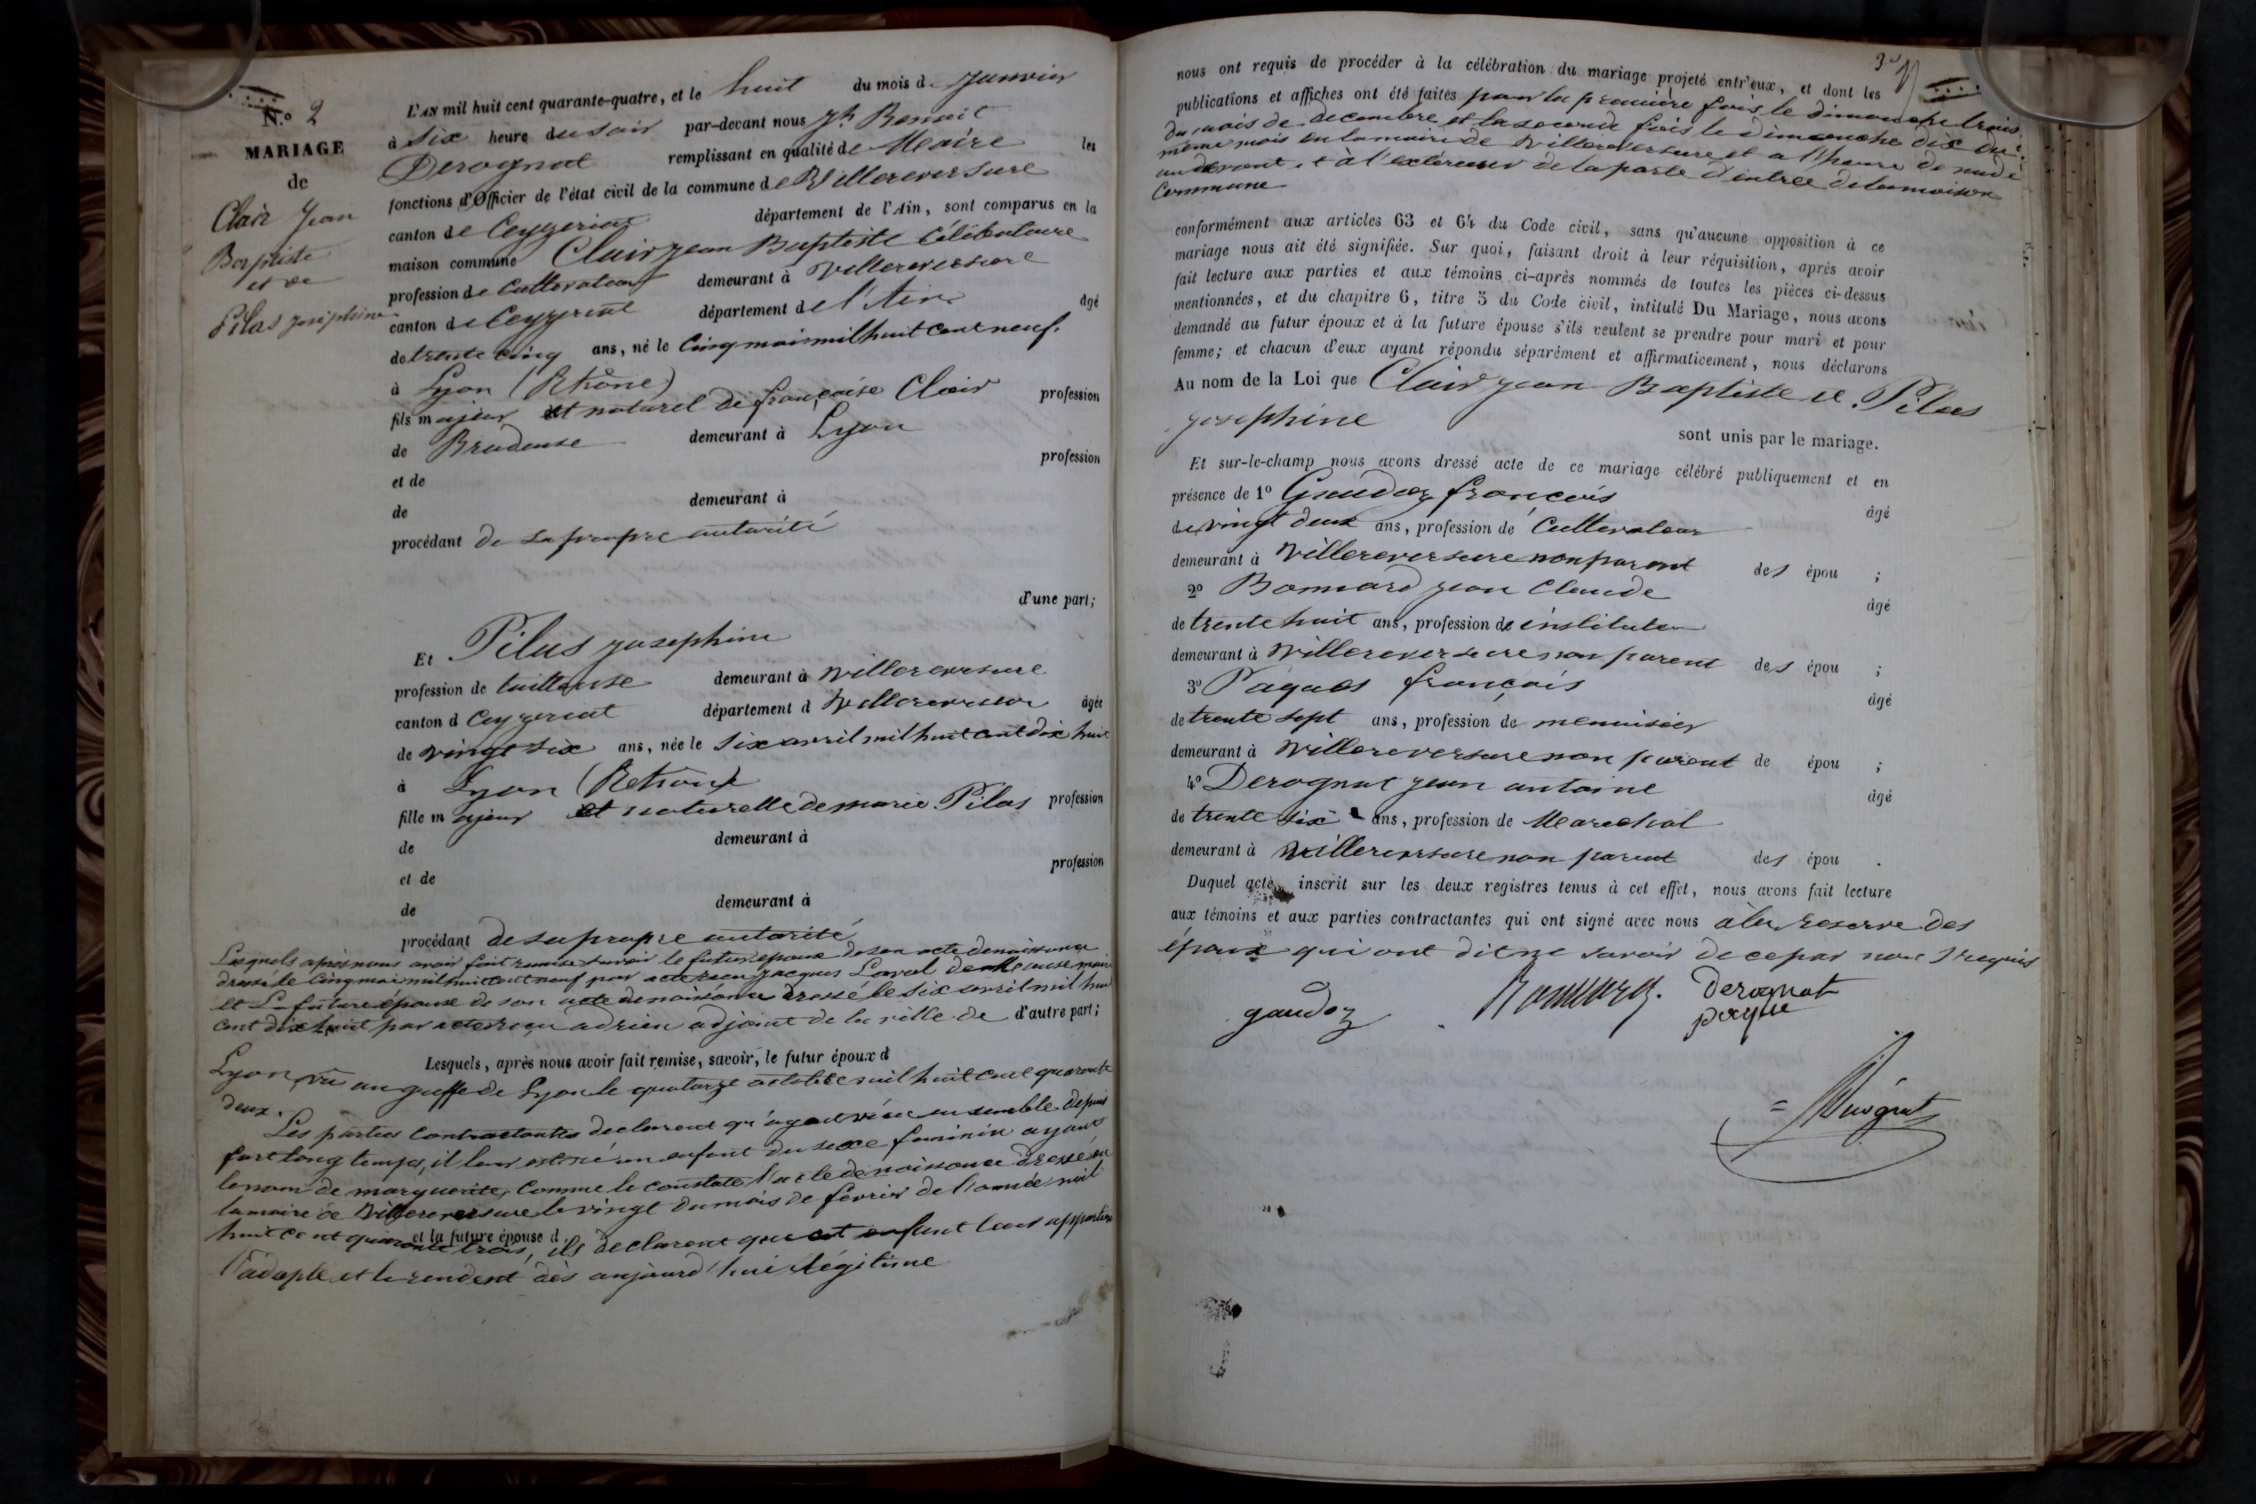 N.º 2
MARIAGE
de
Clair Jean
Baptiste
et de
Pilas josephine
L'AN mil huit cent quarante-quatre, et le huit du mois de janvier
à six heure du soir par-devant nous Jh Benoit
Derognat remplissant en qualité de Maire les
fonctions d'Officier de l'état civil de la commune de Villereversure
canton de Ceyzeriat département de l'Ain, sont comparus en la
maison commune Clair jean Baptiste Célibataire
profession de Cultivateur demeurant à Villereversure
canton de Ceyzeriat département de l'Ain âgé
de trente cinq ans, né le Cinq mai mil huit cent neuf.
à Lyon (Rhône)
fils majeur et naturel de françoise Clair profession
de Brodeuse demeurant à Lyon
et de profession
de demeurant à
procédant de sa propre autorité
d'une part;
Et Pilas josephine
profession de tailleuse demeurant à Villereversure
canton d Ceyzeriat département d Villereversure âgée
de vingt six ans, née le six avril mil huit cent dix huit
à Lyon (Rhône)
fille majeur et naturelle de marie Pilas profession
de demeurant à
et de profession
de demeurant à
procédant de sa propre autorité
Lesquels après nous avoir fait remise savoir le futur epoux de son acte de naissance
dressé le Cinq mai mil huit cent neuf par acte recu jacques Laval maire
et La future épouse de son acte de naissance dressé le six avril mil huit
cent dix huit par acte reçu adrien adjoint de la ville de d'autre part;
Lesquels, après nous avoir fait remise, savoir, le futur époux d
Lyon, vu au greffe de Lyon le quatorze octobre mil huit cent quarante
deux.
Les parties Contractantes declarent qu'ayant vécu ensemble depuis
fort long temps, il leur est né un enfant du sexe feminin ayant
le nom de marguerite, Comme le constate l'acte de naissance dressé en
la mairie de Villereversure le vingt du mois de fevrier de l'année mil
et la future épouse d
huit cent quarante trois, ils declarent que cet enfant leur appartien
l'adopte et le rendent dès aujourd'hui légitime
nous ont requis de procéder à la célébration du mariage projeté entr'eux, et dont les
publications et affiches ont été faites pour la première fois le dimanche trois
du mois de decembre et la seconde fois le dimanche dix du
même mois en la mairie de Villereversure et a l'heure de midi
au devant et à l'extérieur de la porte d'entrée de la maison
Commune
conformément aux articles 63 et 64 du Code civil, sans qu'aucune opposition à ce
mariage nous ait été signifiée. Sur quoi, faisant droit à leur réquisition, après avoir
fait lecture aux parties et aux témoins ci-après nommés de toutes les pièces ci-dessus
mentionnées, et du chapitre 6, titre 5 du Code civil, intitulé Du Mariage, nous avons
demandé au futur époux et à la future épouse s'ils veulent se prendre pour mari et pour
femme; et chacun d'eux ayant répondu séparément et affirmativement, nous déclarons
Au nom de la Loi que Clair jean Baptiste et Pilas
josephine
sont unis par le mariage.
Et sur-le-champ nous avons dressé acte de ce mariage célébré publiquement et en
présence de 1º Gaudoz françois âgé
de vingt deux ans, profession de Cultivateur
demeurant à Villereversure non parent des épou ;
2º Bonnard jean Claude âgé
de trente huit ans, profession de instituteur
demeurant à Villereversure non parent des épou ;
3º Paques françois âgé
de trente sept ans, profession de menuisier
demeurant à Villereversure non parent de épou ;
4º Derognat jean antoine âgé
de trente six ans, profession de Marechal
demeurant à Villereversure non parent des épou .
Duquel acte, inscrit sur les deux registres tenus à cet effet, nous avons fait lecture
aux témoins et aux parties contractantes qui ont signé avec nous à la reserve des
époux qui ont dit ne savoir de ce par nous requis
gaudoz Bonnard Derognat
paque
Derognat